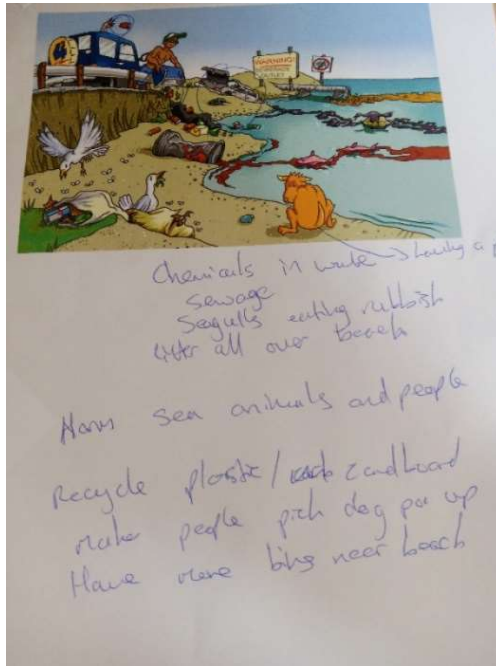 WARNING!
Chemicals in
Sewage
Seagulls eating rubbish
litter all over beach
Harm sea animals and people
Recycle plastic / cardboard
make people pick dog poo up
Have more bins near beach